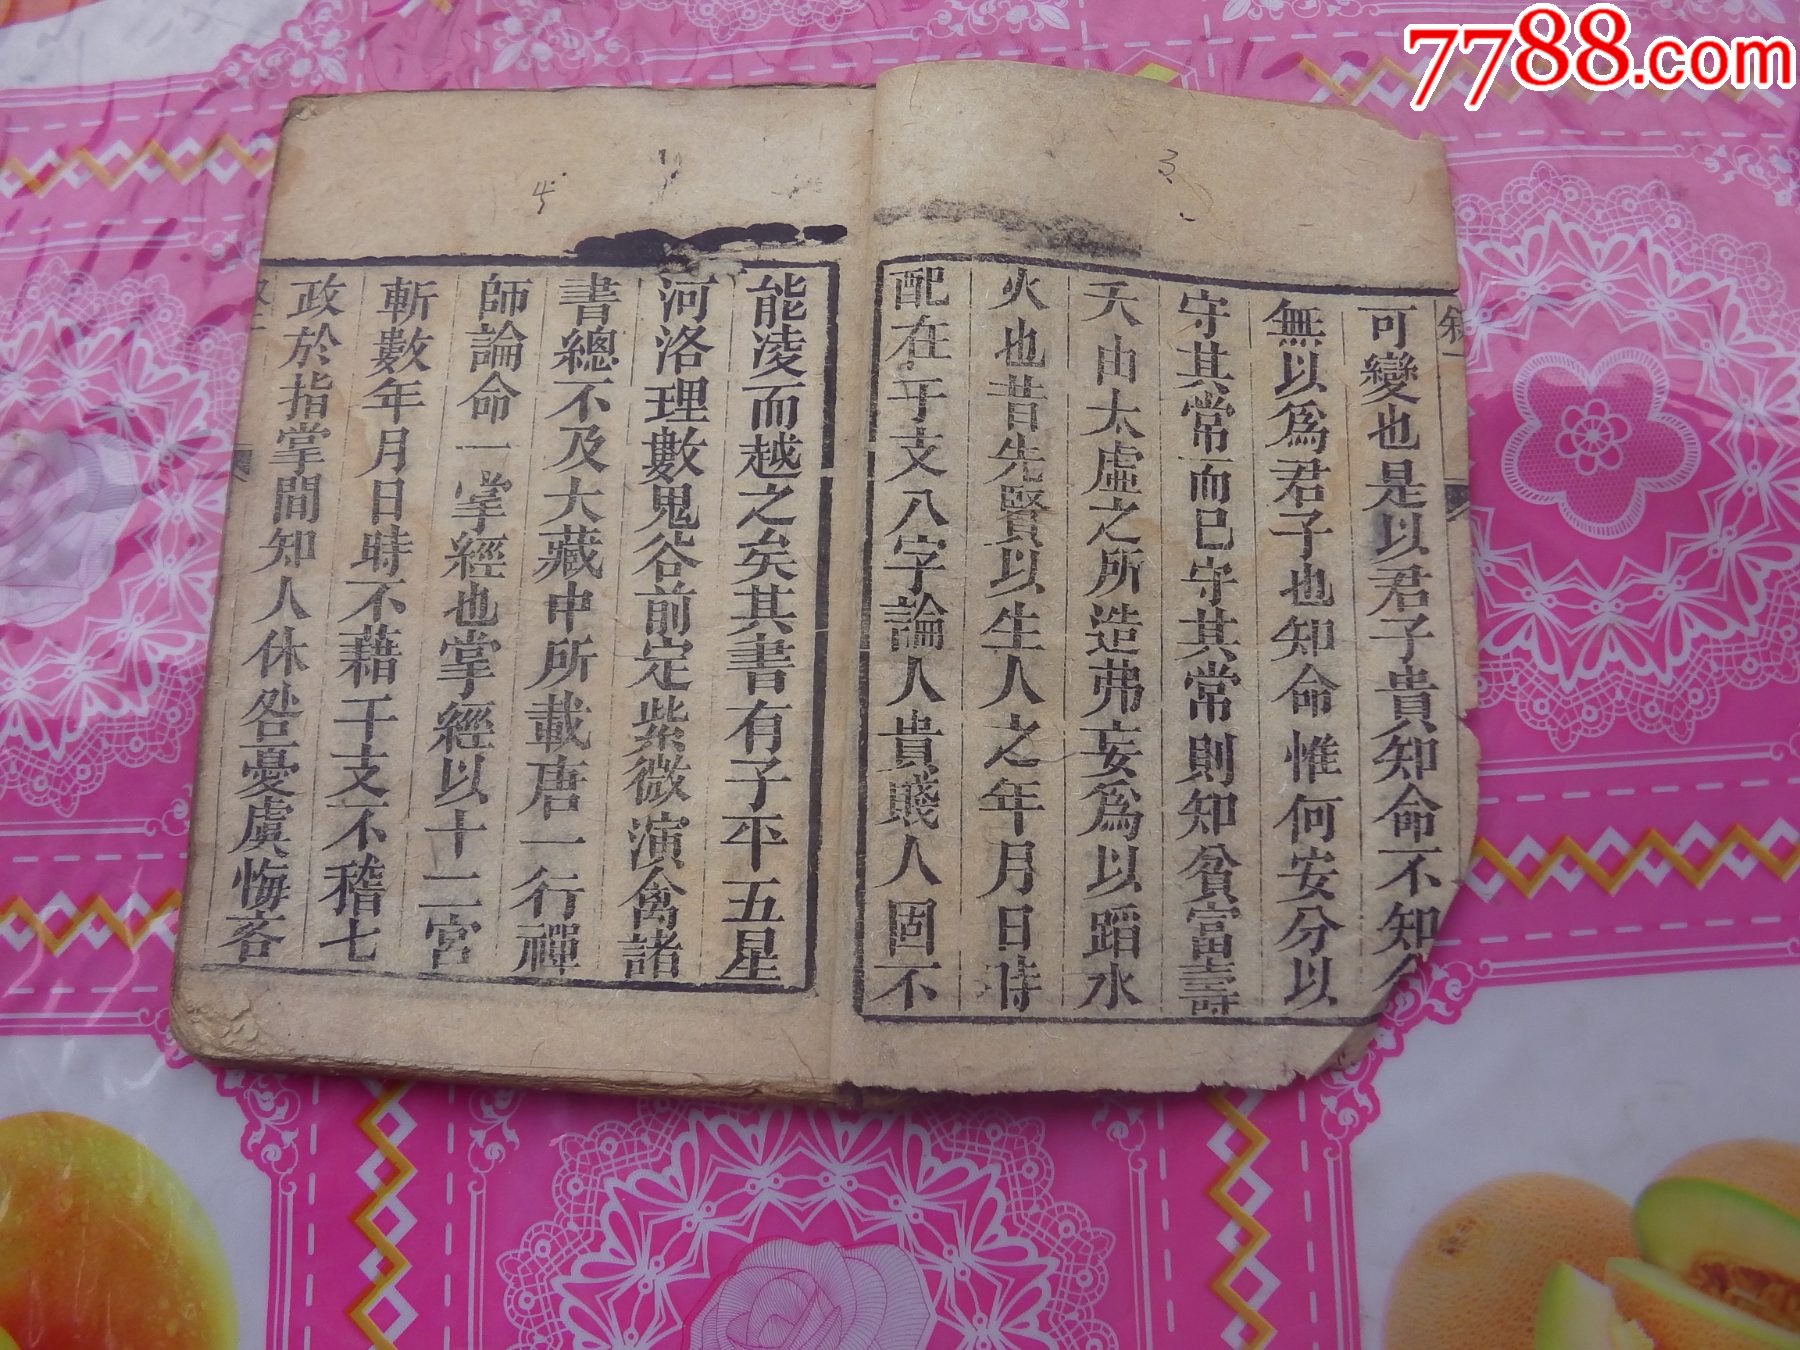 7788.com
3
4
可變也是以君子貴知命不知
無以為君子也知命惟何安分以
守其常而已守其常則知貧富壽
夭由太虛之所造弗妄為以蹈水
火也昔先賢以生人之年月日時
配在干支八字論人貴賤人固不
能凌而越之矣其書有子平五星
河洛理數鬼谷前定紫微演禽諸
書總不及大藏中所載唐一行禪
師論命一掌經也掌經以十二宮
斬數年月日時不藉干支不稽七
政於指掌間知人休咎憂虞悔吝